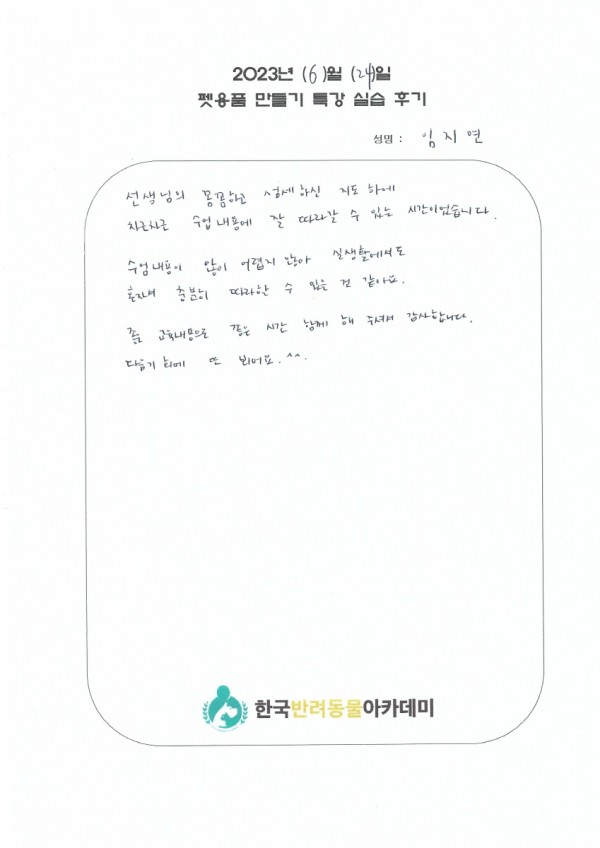 2023년 (6)월 (24)일
펫용품 만들기 특강 실습 후기
성명 : 임지연
선생님의 꼼꼼하고 섬세하신 지도 하에
차근차근 수업 내용에 잘 따라갈 수 있는 시간이었습니다.
수업내용이 많이 어렵지 않아 실생활에서도
혼자서 충분히 따라할 수 있을 것 같아요.
좋은 교육내용으로 좋은 시간 함께 해 주셔서 감사합니다.
다음기회에 또 뵈어요. ^^.
한국반려동물아카데미